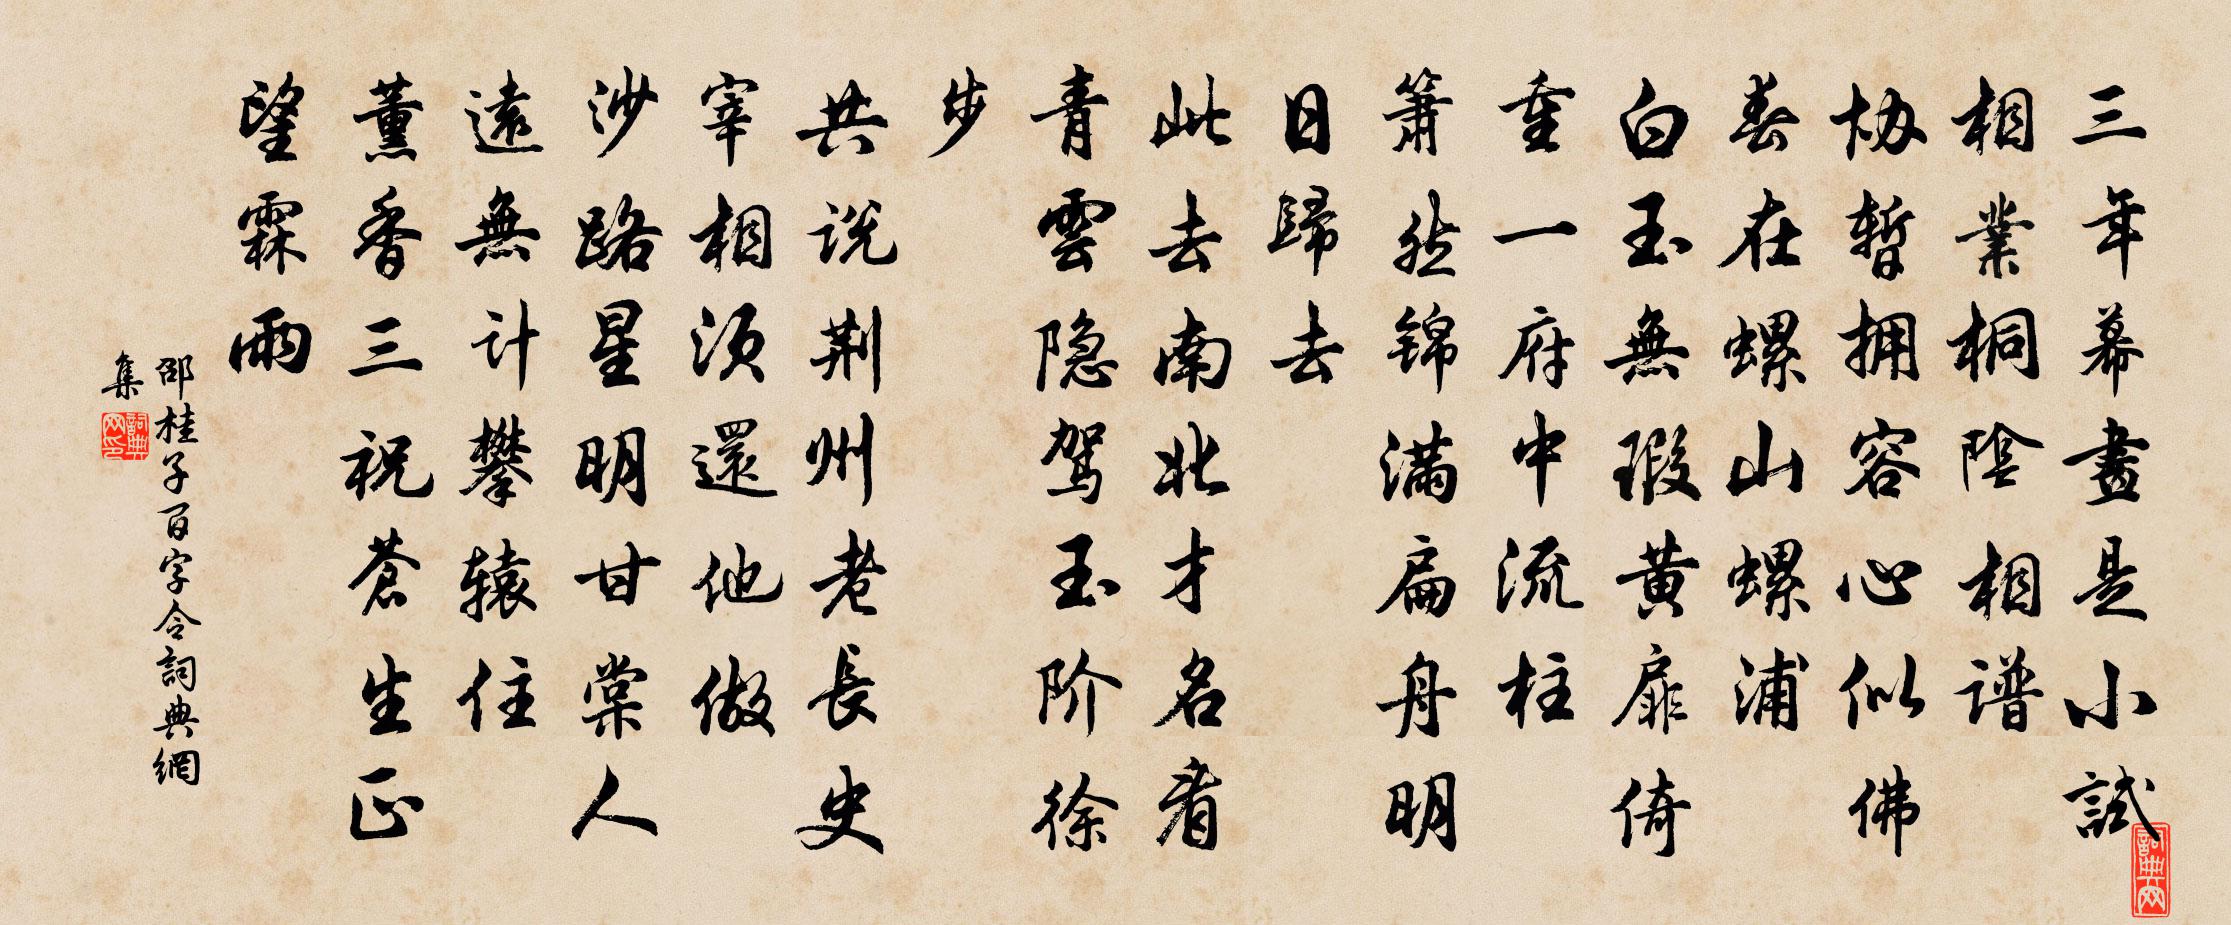 三年幕畫是小試
相業桐陰相譜
協暫拥容心似佛
春在螺山螺浦
白玉無瑕黄扉倚
重一府中流柱
箫然锦满扁舟明
日歸去
此去南北才名看
青雲隐驾玉阶徐
步
共说荆州老長史
宰相须還他做
沙路星明甘棠人
遠無计攀辕住
薰香三祝蒼生正
望霖雨
邵桂子百字令詞典網
集
詞典网印
詞典网